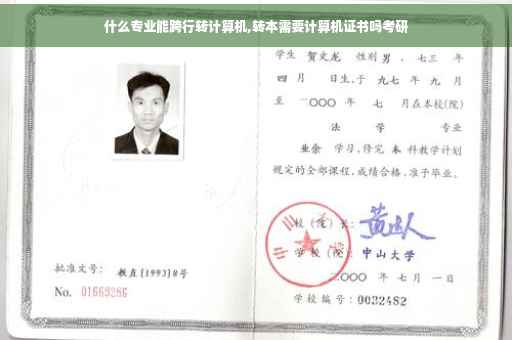 什么专业能跨行转计算机,转本需要计算机证书吗考研
学生 贺文龙 性别 男 、七三 年
四 月 日生,于 九七 年 九 月
至 二〇〇〇 年 七 月在本校(院)
法 学 专业
业余 学习,修完 本 科教学计划
规定的全部课程,成绩合格,准予毕业。
校(院)长:
学校(院): 中山大学
二〇〇〇 年 七 月 一日
批准文号: 教直[1993]8号
No. 01669286
学校编号: 0032482